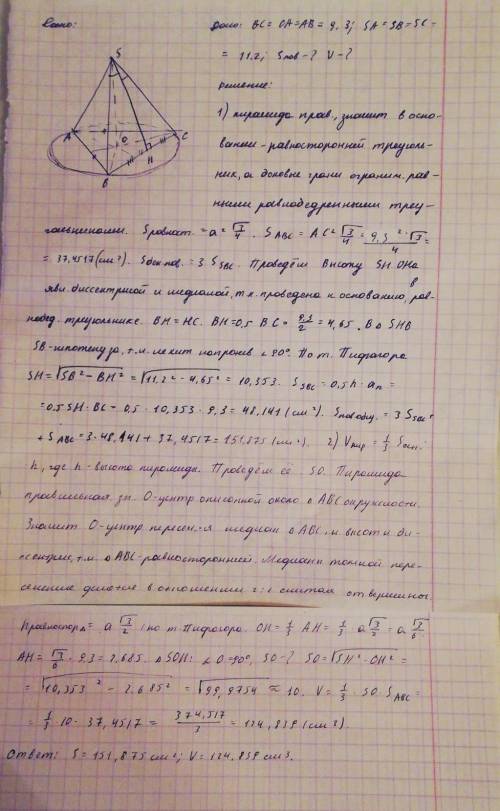 Дано: Дано: BC = CA = AB = 9,3; SA = SB = SC =
= 11,2; Sпов - ? V - ?
S
A
B
C
O
H
Решение:
1) пирамида прав., значит в осно-
вании - равносторонний треуголь-
ник, а боковые грани огранич. рав-
ными равнобедренными треу-
гольниками. Sравност. = a² √3/4. S ABC = AC² √3/4 = 9,3² · √3/4 =
= 37,4517 (см²). Sбок.пов. = 3 · S SBC. Проведём высоту SH. Она
явл. биссектрисой и медианой, т.к. проведена к основанию в рав-
нобед. треугольнике. BH = HC. BH = 0,5 BC = 9,3/2 = 4,65. В Δ SHB
SB - гипотенуза, т.к. лежит напротив ∠ 90°. По т. Пифагора
SH = √SB² - BH² = √11,2² - 4,65² = 10,353. S SBC = 0,5 h · a =
= 0,5 · SH · BC = 0,5 · 10,353 · 9,3 = 48,141 (см²). Sпов общ. = 3 S SBC +
+ S ABC = 3 · 48,141 + 37,4517 = 151,875 (см²). 2) Vпир = 1/3 Sосн ·
h, где h - высота пирамиды. Проведём её. SO. Пирамида
правильная, зн. O - центр описанной около Δ ABC окружности.
Значит O - центр пересеч-я медиан Δ ABC, и высот и би-
ссектрис, т.к. Δ ABC - равносторонний. Медианы точкой пере-
сечения делятся в отношении 2:1 считая от вершины.
hравностор Δ = a √3/2 (по т. Пифагора. OH = 1/3 AH = 1/3 · a √3/2 = a √3/6
AH = √3/6 · 9,3 = 2,685. Δ SOH: ∠O = 90°, SO - ? SO = √SH² - OH² =
= √10,353² - 2,685² = √99,9754 ≈ 10. V = 1/3 · SO · S ABC =
= 1/3 · 10 · 37,4517 = 374,517/3 = 124,839 (см³).
Ответ: S = 151,875 см²; V = 124,839 см³.